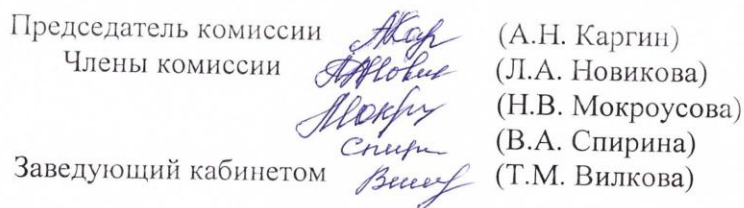 Председатель комиссии (А.Н. Каргин)
Члены комиссии (Л.А. Новикова)
(Н.В. Мокроусова)
(В.А. Спирина)
Заведующий кабинетом (Т.М. Вилкова)